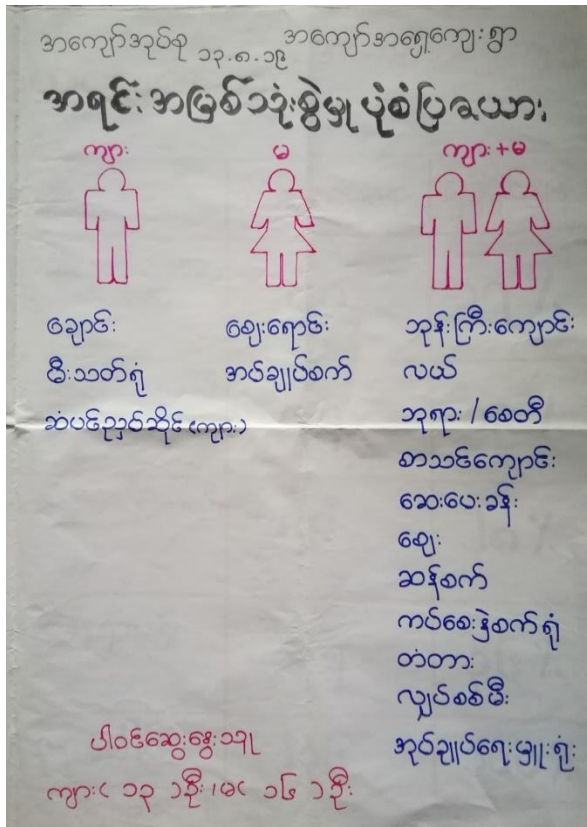 အကျော်အုပ်စု ၁၃.၈.၁၉ အကျော်အရှေ့ကျေးရွာ
အရင်းအမြစ်သုံးစွဲမှုပုံစံပြဇယား
ကျား မ ကျား+မ
ချောင်း ဈေးရောင်း ဘုန်းကြီးကျောင်း
မီးသတ်ရုံ အပ်ချုပ်စက် လယ်
ဆံပင်ညှပ်ဆိုင်(ကျား) ဘုရား/စေတီ
စာသင်ကျောင်း
ဆေးပေးခန်း
ဈေး
ဆန်စက်
ကပ်စေးနဲစက်ရုံ
တံတား
လျှပ်စစ်မီး
အုပ်ချုပ်ရေးမှူးရုံး
ပါဝင်ဆွေးနွေးသူ
ကျား( ၁၃ )ဦး၊မ( ၁၆ )ဦး